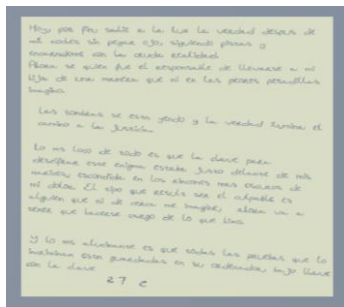 Hoy, por fin, salió a la luz la verdad despues de
mil noches sin pegar ojo, siguiendo pistas y
encarandome con la cruda realidad.
Ahora se quien fue el responsable de llevarse a mi
hija de una manera que ni en las peores pesadillas
imagino.
Las sombras se estan yendo y la verdad ilumina el
camino a la justicia.
Lo mas loco de todo es que la clave para
descifrar este enigma estaba justo delante de mis
narices, escondida en los rincones mas oscuros de
mi dolor. El tipo que resulta ser el culpable es
alguien que ni de cerca me imagine, ahora va a
tener que hacerse cargo de lo que hizo.
Y lo mas alucinante es que todas las pruebas que lo
incriminan estan guardadas en su ordenador, bajo llave
con la clave
27 c